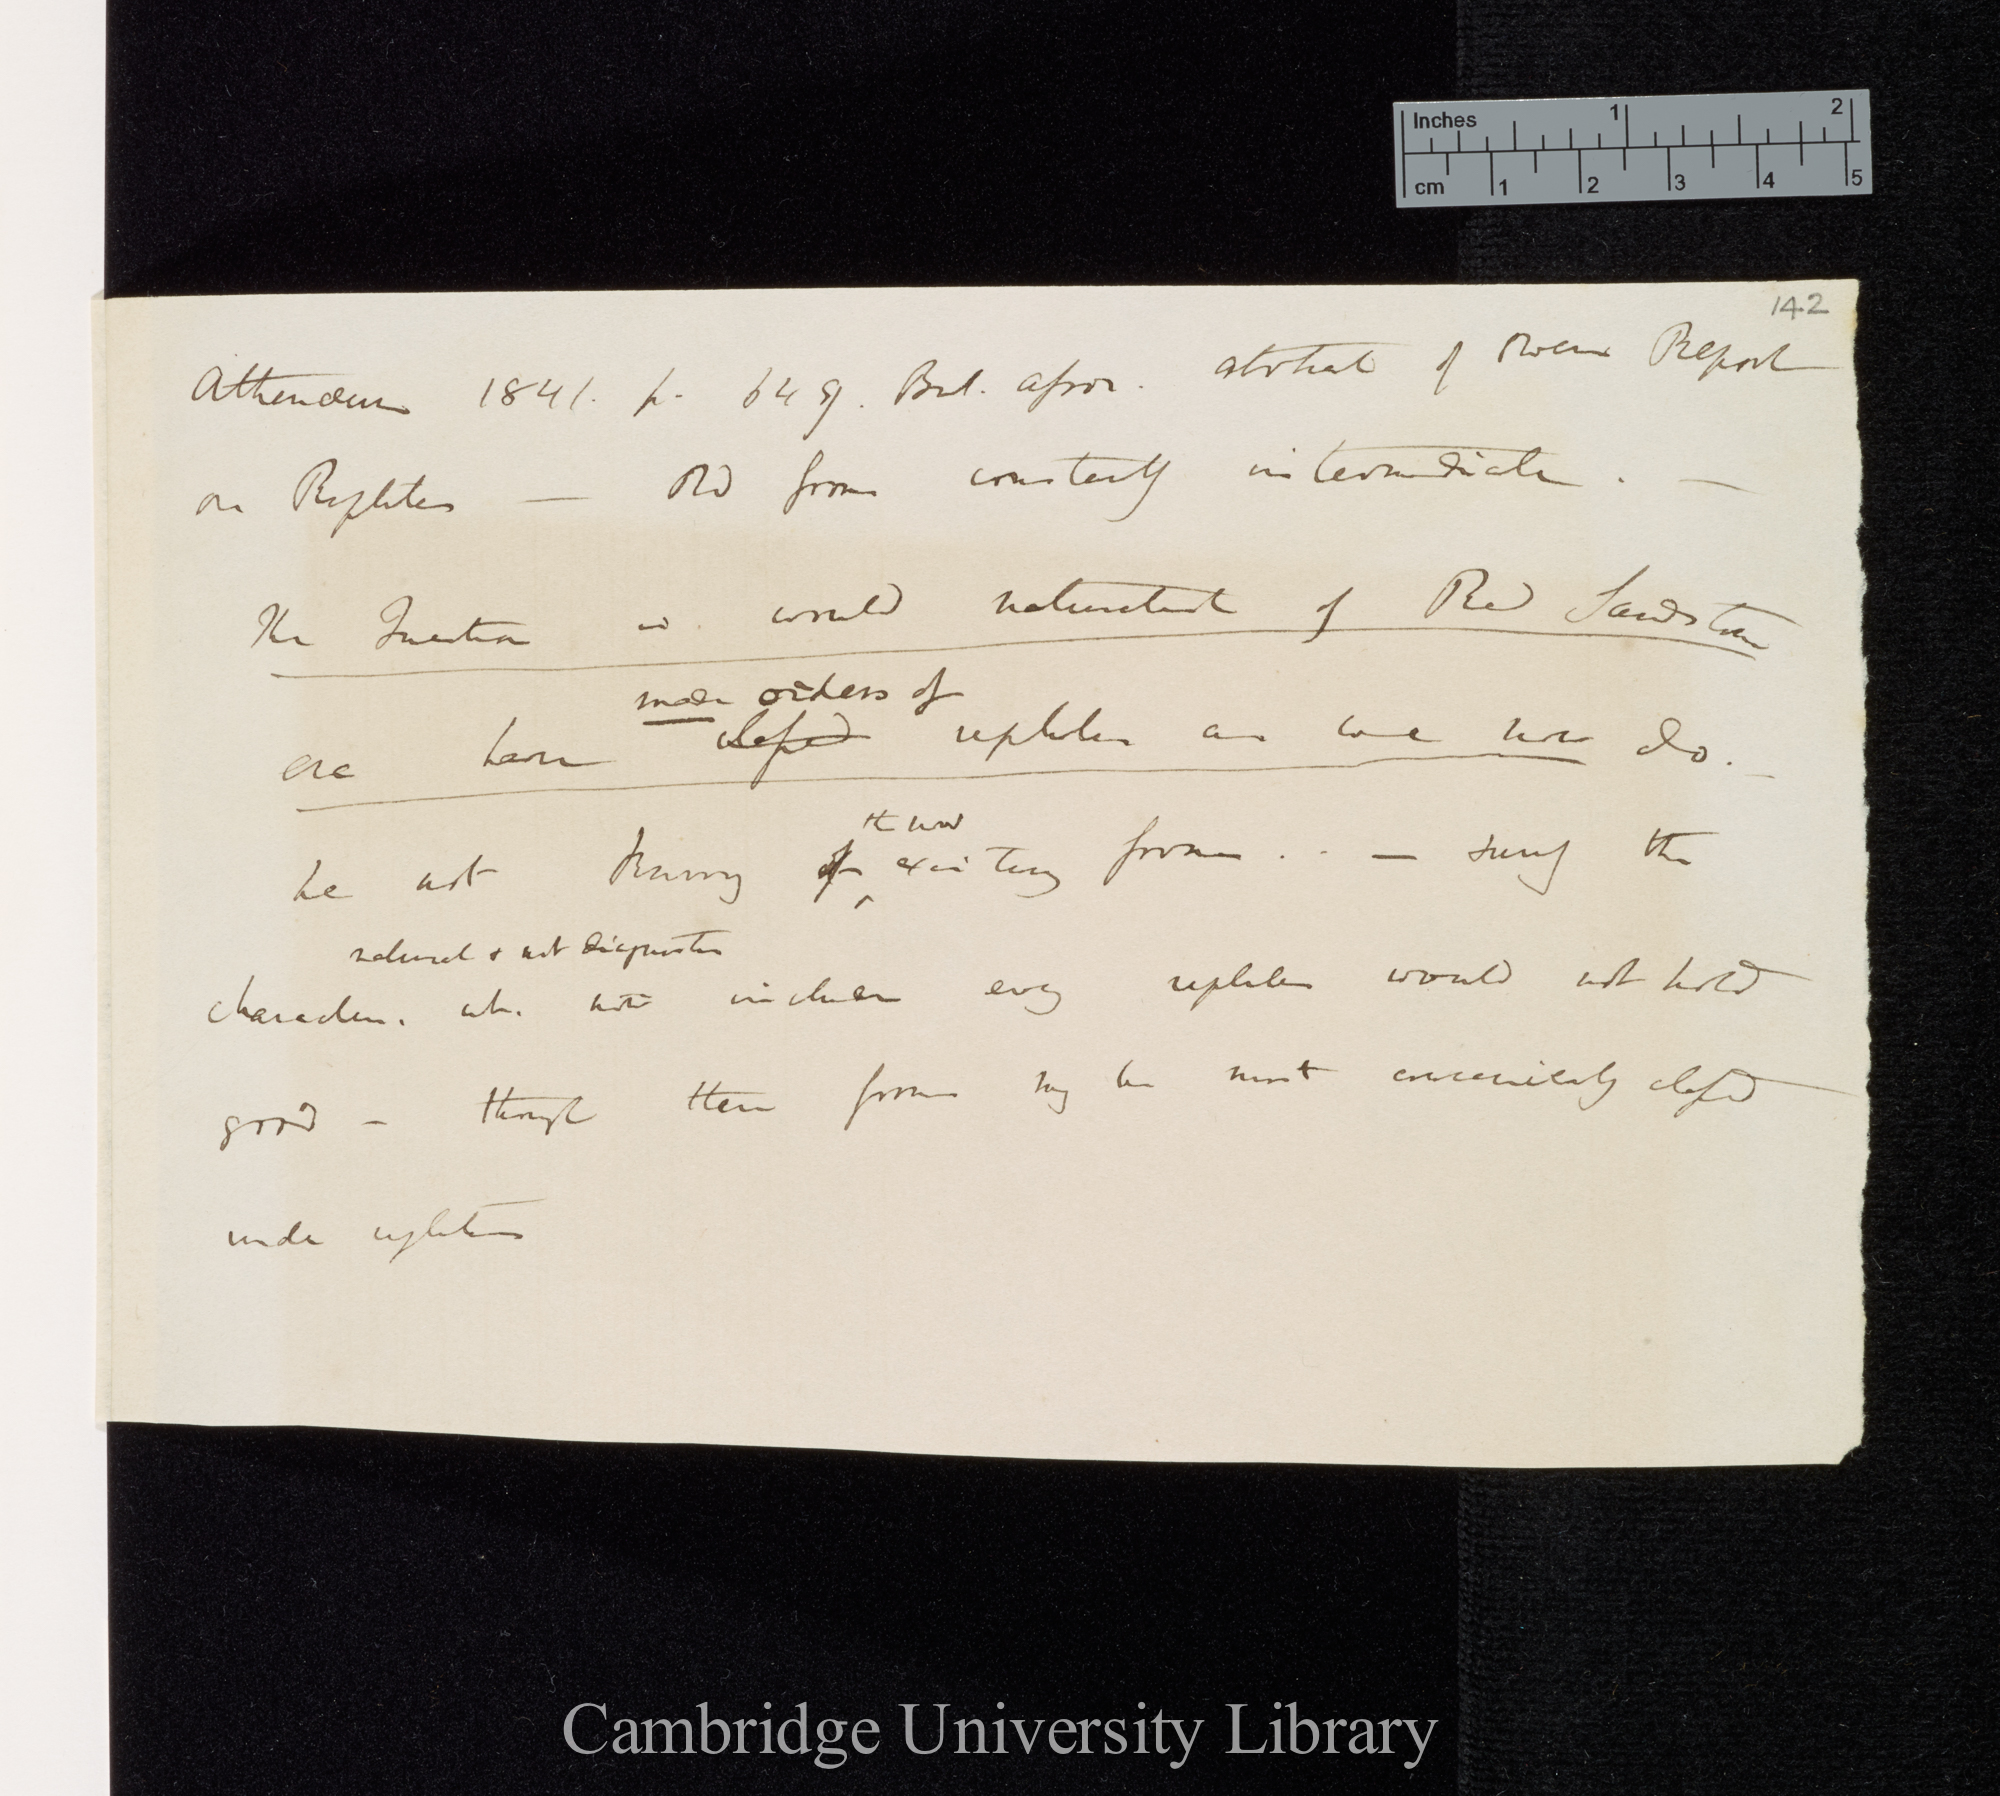 Inches 1 2
cm 1 2 3 4 5
142
Athenæum 1841. p. 649. Brit. Assoc. abstract of Owens Report
on Reptiles — Old forms constantly intermediate. —
The Question is would naturalist of Red Sandstone
era have classed reptiles as we now do. —
more orders of
he not knowing of existing forms. — surely the
the now
natural & not diagnostic
characters. wh. now include every reptiles would not hold
good — though these forms may be most conveniently classed
under reptiles
Cambridge University Library